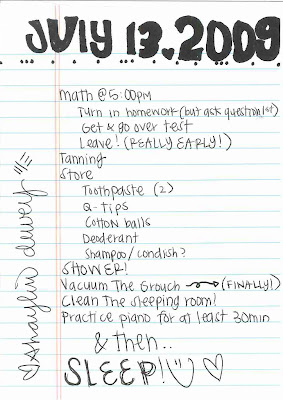 JULY 13, 2009
math @ 5:00pm
Turn in homework (but ask question 1st)
Get & go over test
Leave! (REALLY EARLY!)
Tanning
Store
Toothpaste (2)
Q-tips
Cotton balls
Deoderant
Shampoo/condish?
SHOWER!
Vacuum The Grouch (FINALLY!)
Clean The sleeping room!
Practice piano for at least 30min
& then..
SLEEP!
Shaylin dewey